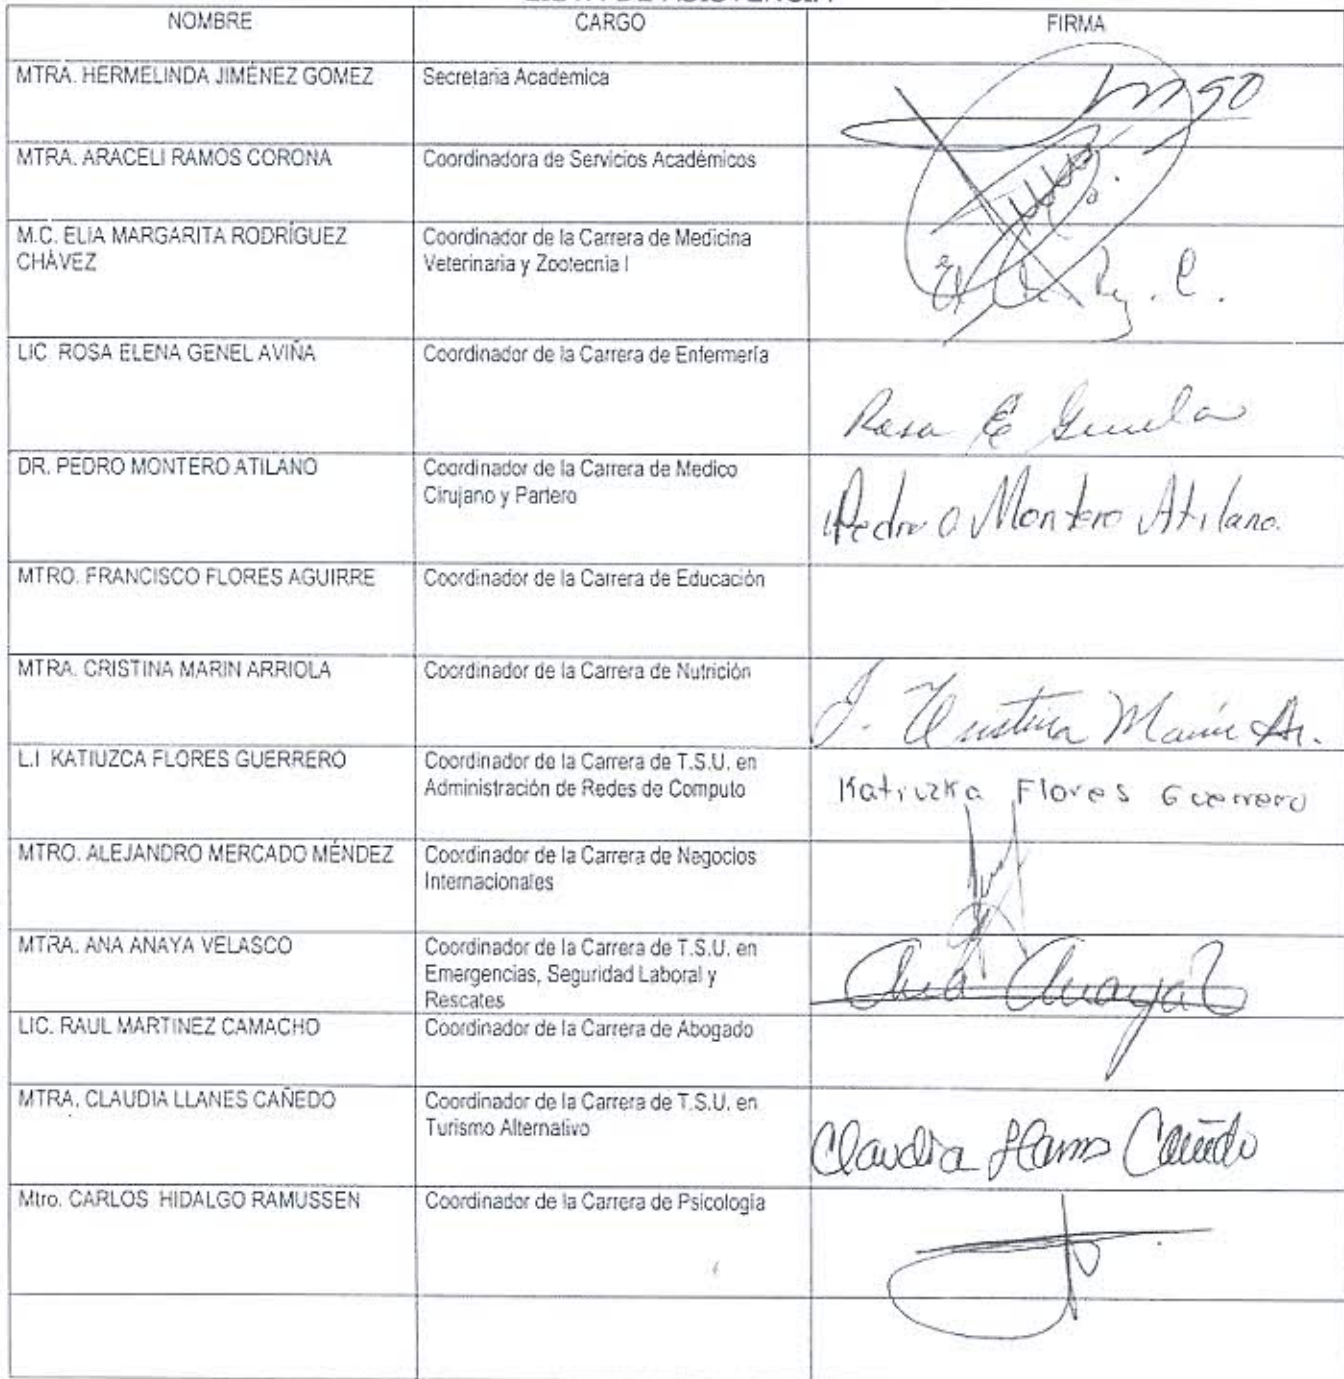 NOMBRE CARGO FIRMA
MTRA. HERMELINDA JIMÉNEZ GOMEZ Secretaria Academica
MTRA. ARACELI RAMOS CORONA Coordinadora de Servicios Académicos
M.C. ELIA MARGARITA RODRÍGUEZ Coordinador de la Carrera de Medicina
CHÁVEZ Veterinaria y Zootecnia I
LIC ROSA ELENA GENEL AVIÑA Coordinador de la Carrera de Enfermería
Rosa E
DR. PEDRO MONTERO ATILANO Coordinador de la Carrera de Medico
Cirujano y Partero
Pedro Montero Atilano
MTRO. FRANCISCO FLORES AGUIRRE Coordinador de la Carrera de Educación
MTRA. CRISTINA MARIN ARRIOLA Coordinador de la Carrera de Nutrición
J. Cristina Marín Ar.
L.I KATIUZCA FLORES GUERRERO Coordinador de la Carrera de T.S.U. en
Administración de Redes de Computo
Katiuzka Flores Guerrero
MTRO. ALEJANDRO MERCADO MÉNDEZ Coordinador de la Carrera de Negocios
Internacionales
MTRA. ANA ANAYA VELASCO Coordinador de la Carrera de T.S.U. en
Emergencias, Seguridad Laboral y
Rescates
Ana Anaya
LIC. RAUL MARTINEZ CAMACHO Coordinador de la Carrera de Abogado
MTRA. CLAUDIA LLANES CAÑEDO Coordinador de la Carrera de T.S.U. en
Turismo Alternativo
Claudia Llanes Cañedo
Mtro. CARLOS HIDALGO RAMUSSEN Coordinador de la Carrera de Psicología